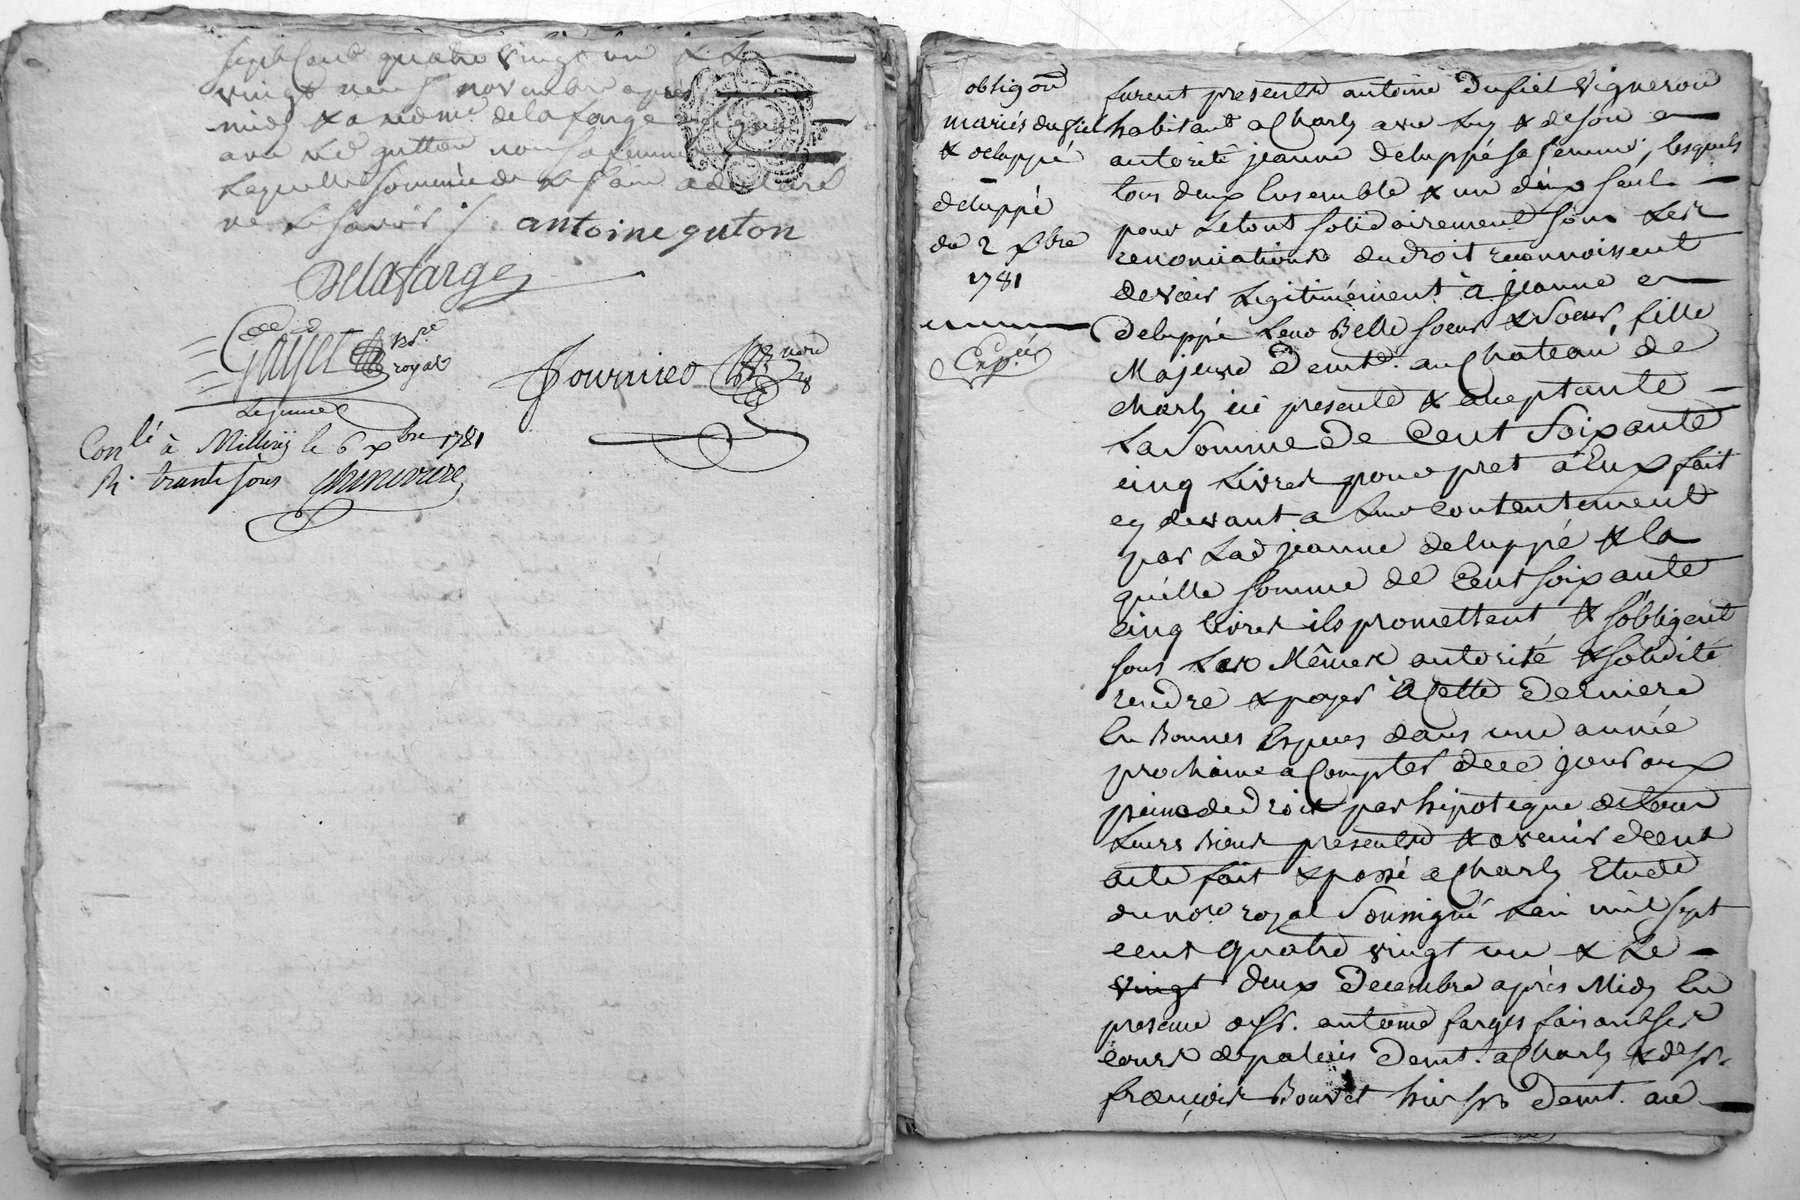 sept Cent quatre vingt un & Le
vingt neuf novembre apres
midy & a led me. delafarge signé
avec led gutton non sa femme
Laquelle sommée de Le faire a declaré
ne Le savoir /.
antoine guton
Delafarge
Gayet
Nre.
royal
Fournier
Lesquels
Conlé à Millery le 6 xbre 1781
R. trente sous
obligon
mariés dufiel
& deluppé
deluppé
du 2 xbre
1781
Expiée
furent presents antoine Dufiel vigneron
habitant a Charly avec luy & de son
autorité jeanne deluppé sa femme, lesquels
tous deux Ensemble & un d'eux seul
pour Letout solidairement sous Les
renonciations du droit reconnoissent
devoir Legitimement à jeanne
Deluppé Leur Belle soeur & Soeur, fille
Majeure Demte. au Chateau de
charly ici presente & aceptante
La Somme de Cent Soixante
cinq Livres pour pret à Eux fait
cy devant a Leur contentement
par Lad jeanne deluppé & la
qu'elle somme de Cent soixante
cinq livres ils promettent & s'obligent
sous Les Mêmes autorité & solidité
rendre & payer à Cette Derniere
En Bonnes Especes dans une année
prochaine a Compter de ce jour aux
peines de Droit par hipoteque de tous
Leurs Biens presents & avenir dont
acte fait & passé a Charly Etude
du nore royal Soussigné L'an mil sept
cent quatre vingt un & Le
vingt deux Decembre après Midy En
presence de sr. antoine farges faisant ses
cours de palais Demt. a Charly & de sr.
françois Bouvet Demt. au